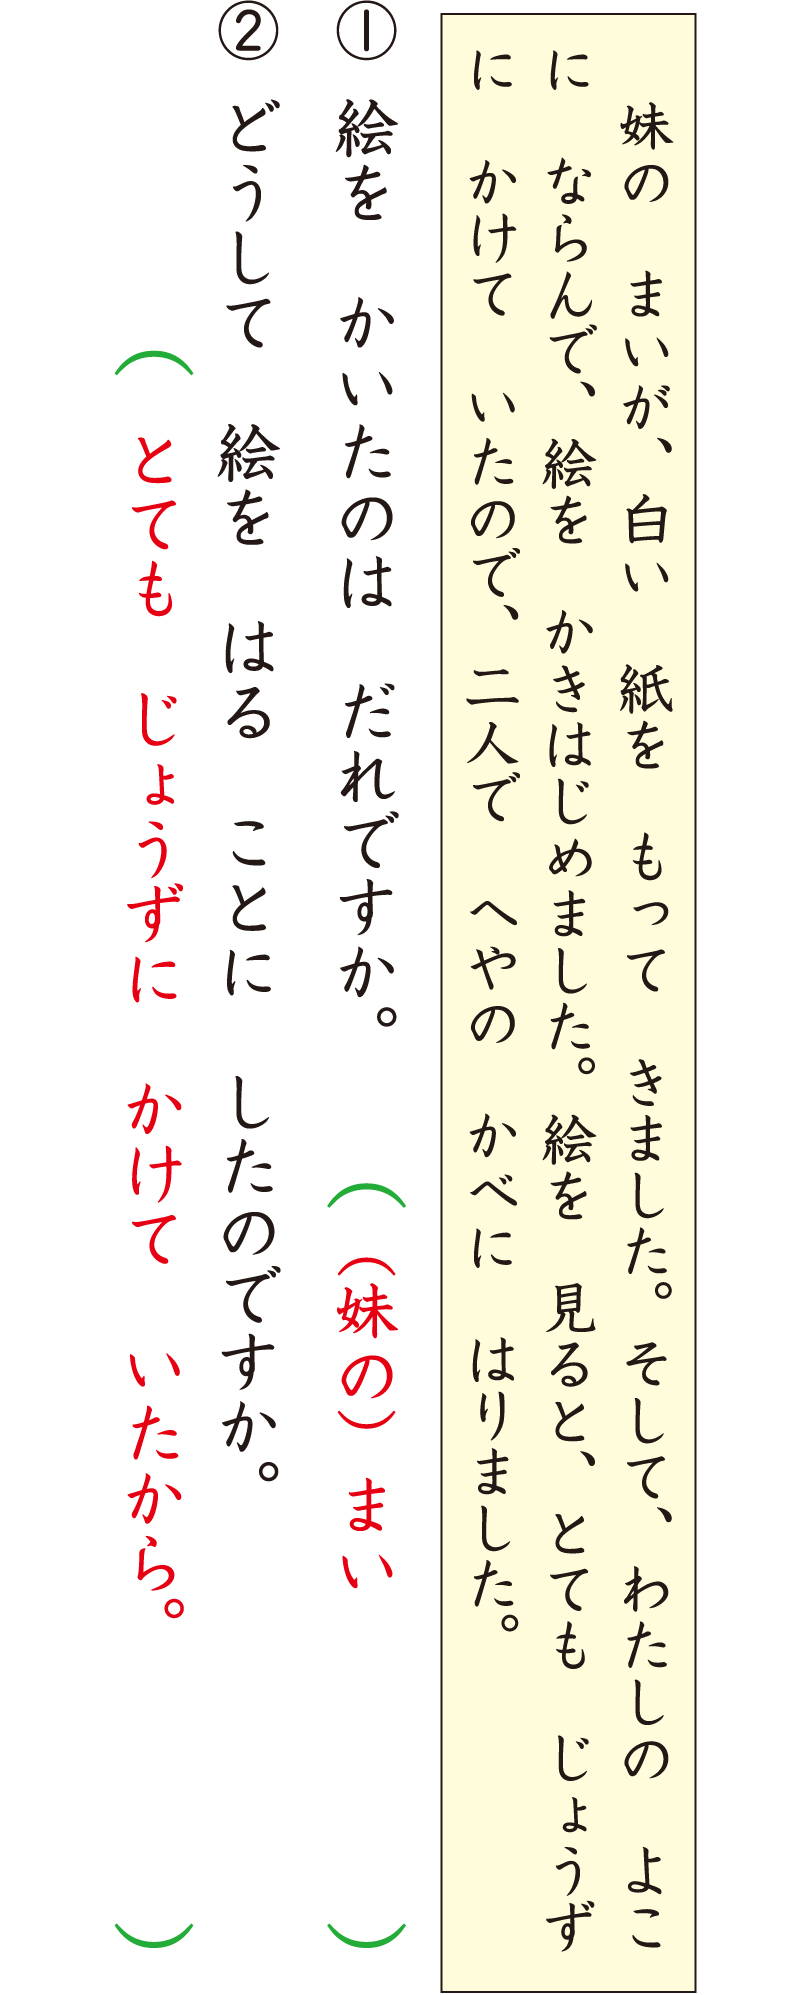 妹の　まいが、白い　紙を　もって　きました。そして、わたしの　よこ
に　ならんで、絵を　かきはじめました。絵を　見ると、とても　じょうず
に　かけて　いたので、二人で　へやの　かべに　はりました。
①　絵を　かいたのは　だれですか。　（（妹の）まい　）
②　どうして　絵を　はる　ことに　したのですか。
（　とても　じょうずに　かけて　いたから。　）